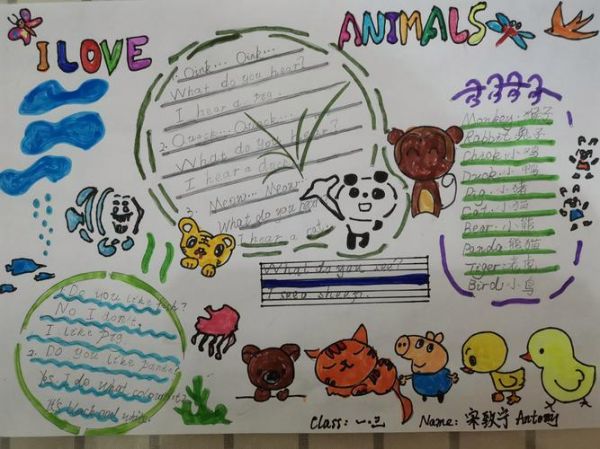 I LOVE ANIMALS
1. Oink... Oink...
What do you hear?
I hear a pig.
2. Quack... Quack...
What do you hear?
I hear a duck
3. Meow... Meow
What do you hear
I hear a cat
What do you see?
I see a sheep.
1. Do you like
No I don't.
I like pig
2. Do you like panda?
Yes I do what colour it?
It's black and white.
Monkey 猴子
Rabbit 兔子
Chick 小鸡
Duck 小鸭
Pig 小猪
Cat 小猫
Bear 小熊
Panda 熊猫
Tiger 老虎
Bird 小鸟
Class: 一.三 Name: 宋致宁 Antony